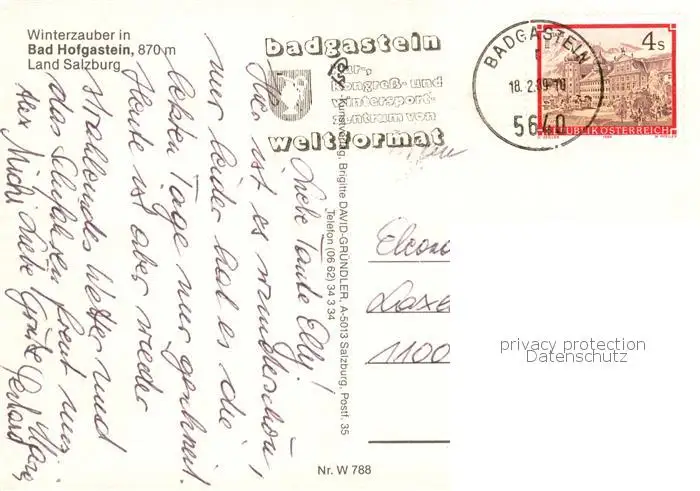 Winterzauber in
Bad Hofgastein, 870 m
Land Salzburg
badgastein
kur-,
kongreß- und
wintersport-
zentrum von
weltformat
BADGASTEIN
18.2.89-10
5640
4s
REPUBLIK ÖSTERREICH
Liebe Tante Elly!
Hier ist es wunderschön,
nur leider hat es die
letzten Tage nur geschneit.
Heute ist aber wieder
strahlendes Wetter und
das Schifahren freut uns.
Liebe Grüße Gerhard
Alex Michi
Kunstverlag Brigitte DAVID-GRÜNDLER, A-5013 Salzburg, Postf. 35
Telefon (06 62) 34 3 34
Eleono
Laxe
1100
privacy protection
Datenschutz
Nr. W 788